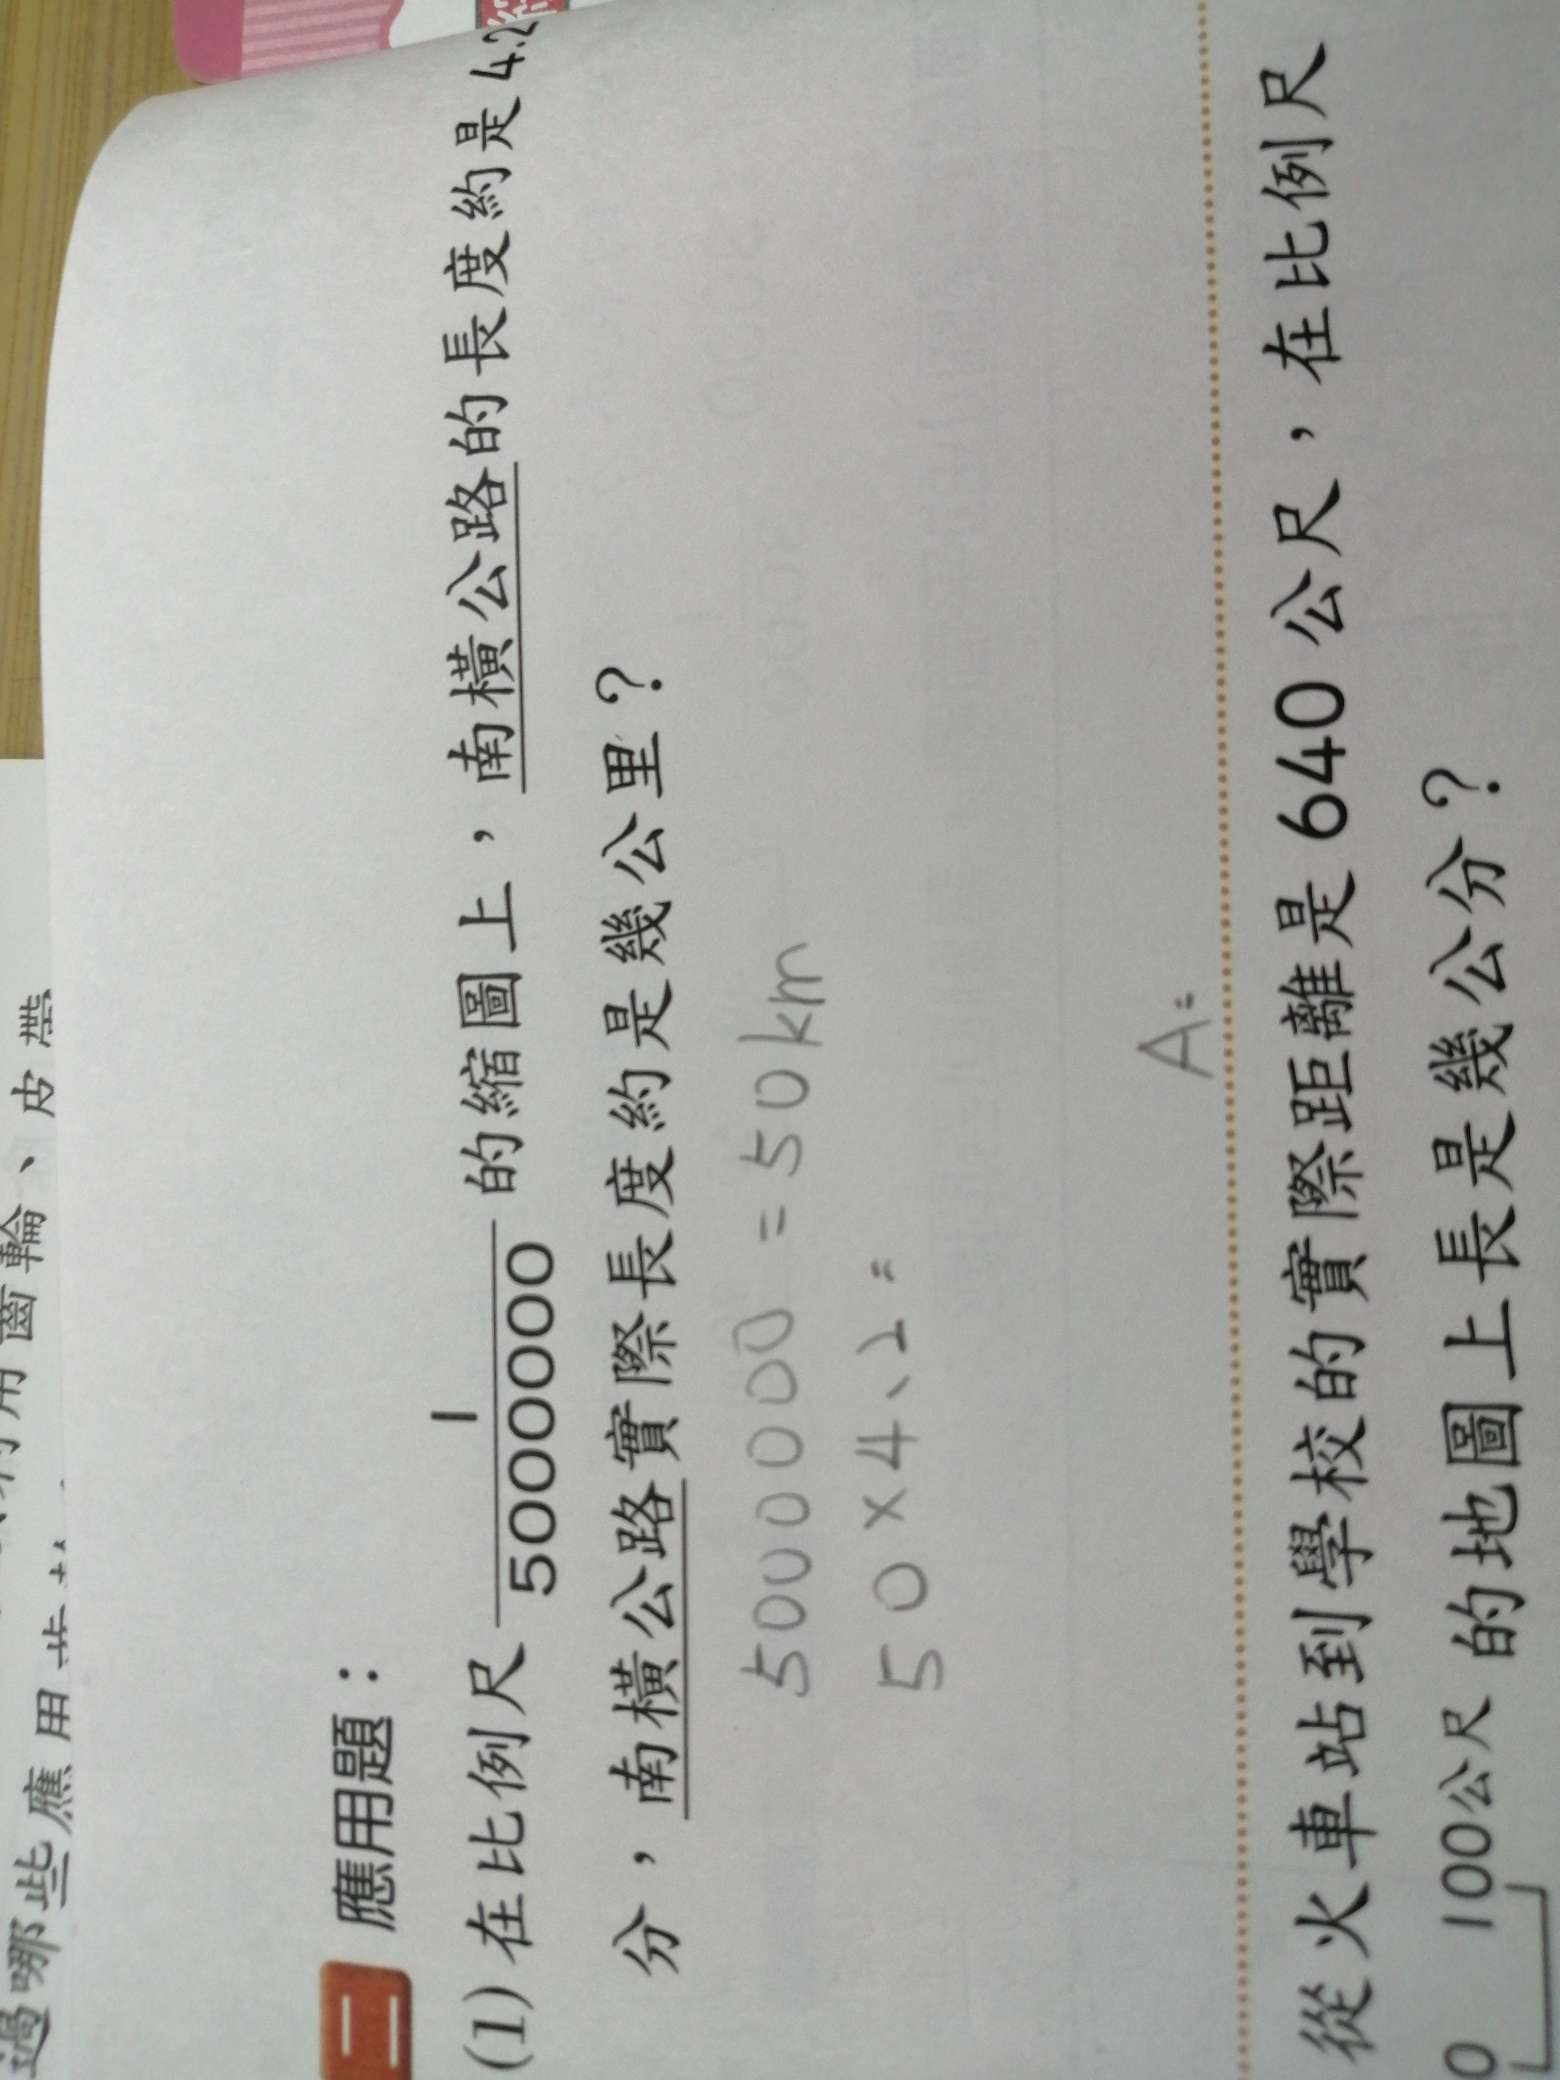 過哪些應用
齒輪、皮帶
二 應用題：
(1) 在比例尺 1/5000000 的縮圖上，南橫公路的長度約是 4.2
分，南橫公路實際長度約是幾公里？
5000000 = 50km
50×4、2=
A=
從火車站到學校的實際距離是 640 公尺，在比例尺
0 100公尺 的地圖上長是幾公分？